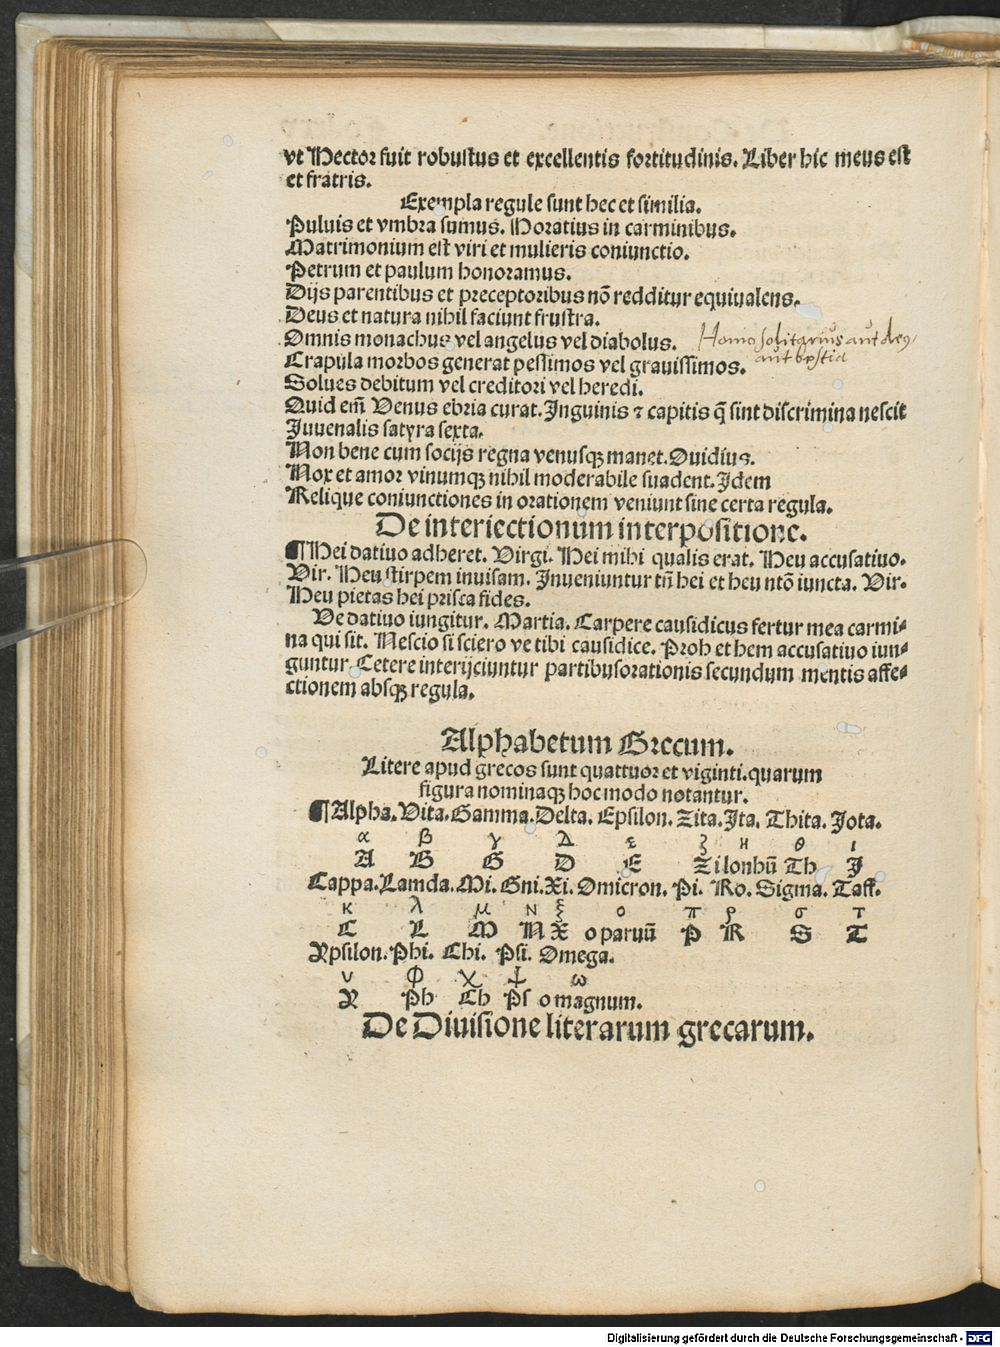 vt Hector fuit robustus et excellentis fortitudinis. Liber hic meus est
et fratris.
Exempla regule sunt hec et similia.
Puluis et vmbra sumus. Horatius in carminibus.
Matrimonium est viri et mulieris coniunctio.
Petrum et paulum honoramus.
Dijs parentibus et preceptoribus nō redditur equiualens.
Deus et natura nihil faciunt frustra.
Omnis monachus vel angelus vel diabolus.
Homo solitarius aut deꝰ
aut bestia
Crapula morbos generat pessimos vel grauissimos.
Solues debitum vel creditori vel heredi.
Quid em̄ Venus ebria curat. Inguinis ⁊ capitis q̄ sint discrimina nescit
Juuenalis satyra sexta.
Non bene cum socijs regna venusqꝫ manet. Ouidius.
Nox et amor vinumqꝫ nihil moderabile suadent. Idem
Relique coniunctiones in orationem veniunt sine certa regula.
De interiectionum interpositione.
¶ Hei datiuo adheret. Virgi. Hei mihi qualis erat. Heu accusatiuo.
Vir. Heu stirpem inuisam. Inueniuntur tn̄ hei et heu ntō iuncta. Vir.
Heu pietas hei prisca fides.
Ve datiuo iungitur. Martia. Carpere causidicus fertur mea carmi⸗
na qui sit. Nescio si sciero ve tibi causidice. Proh et hem accusatiuo iun⸗
guntur. Cetere interijciuntur partibusorationis secundum mentis affe⸗
ctionem absqꝫ regula.
Alphabetum Grecum.
Litere apud grecos sunt quattuor et viginti. quarum
figura nominaqꝫ hoc modo notantur.
¶ Alpha. Vita. Gamma. Delta. Epsilon. Zita. Ita. Thita. Jota.
α β γ Δ ε ζ н θ ι
A B G D E Z i lonhū Th I
Cappa. Lamda. Mi. Gni. Xi. Omicron. Pi. Ro. Sigma. Taff.
κ λ μ ν ξ ο π ρ σ τ
C L M N X o paruū P R S T
Ypsilon. Phi. Chi. Psi. Omega.
υ Φ χ ψ ω
Y Ph Ch Ps o magnum.
De Diuisione literarum grecarum.
Digitalisierung gefördert durch die Deutsche Forschungsgemeinschaft - DFG